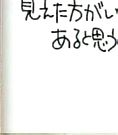 見えた方がい
あると思う